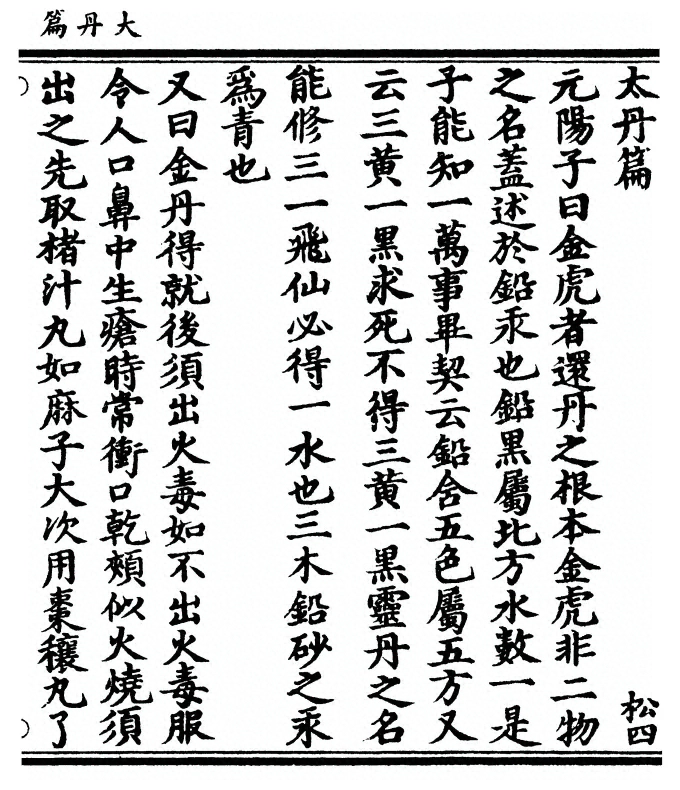 大丹篇
太丹篇
松四
元陽子曰金虎者還丹之根本金虎非二物
之名蓋述於鉛汞也鉛黑屬北方水數一是
子能知一萬事畢契云鉛含五色屬五方又
云三黃一黑求死不得三黃一黑靈丹之名
能修三一飛仙必得一水也三木鉛砂之汞
爲青也
又曰金丹得就後須出火毒如不出火毒服
令人口鼻中生瘡時常衝口乾頰似火燒須
出之先取楮汁丸如麻子大次用棗穰丸了